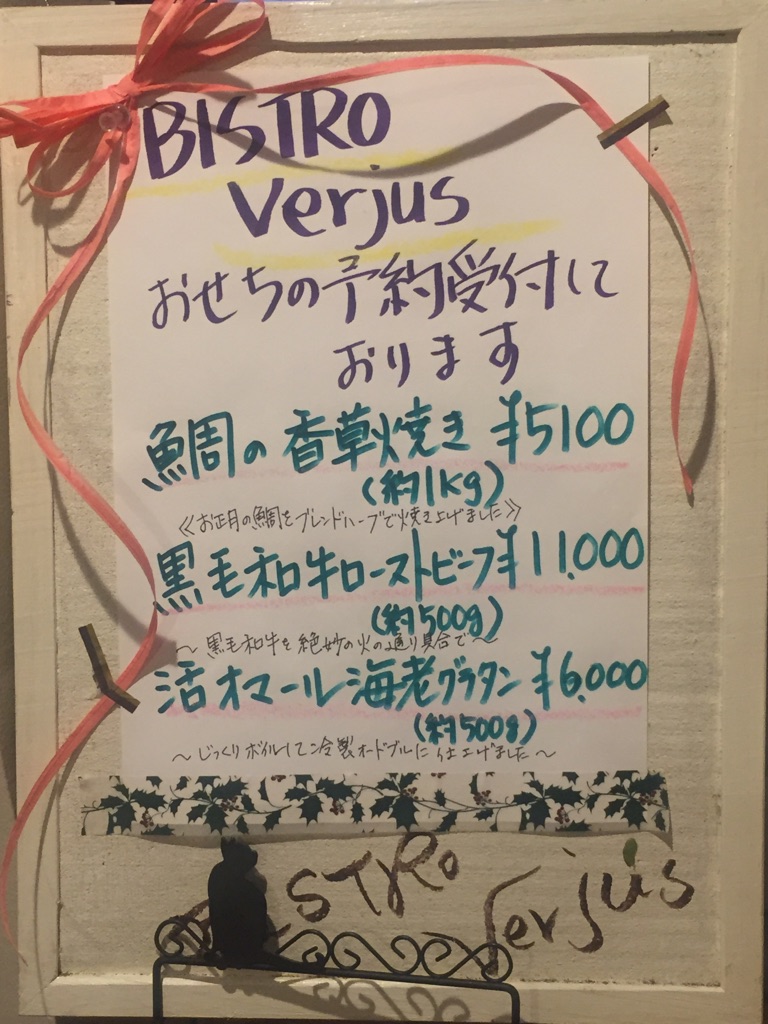 BISTRO
Verjus
おせちの予約受付して
おります
鯛の香草焼き ¥5100
(約1kg)
《お正月の鯛をブレンドハーブで焼き上げました》
黒毛和牛ローストビーフ ¥11.000
(約500g)
～黒毛和牛を絶妙の火の通り具合で～
活オマール海老グラタン ¥6.000
(約500g)
～じっくりボイルして冷製オードブルに仕上げました～
BISTRO Verjus